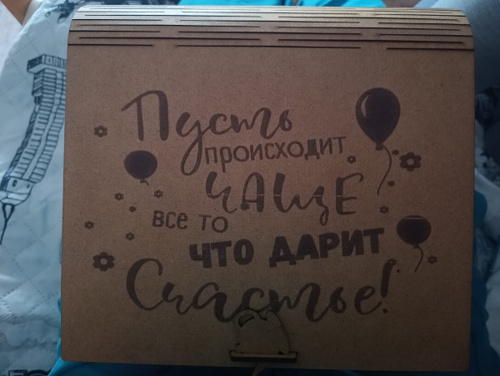 Пусть
происходит
ЧАЩЕ
все то
что дарит
Счастье!